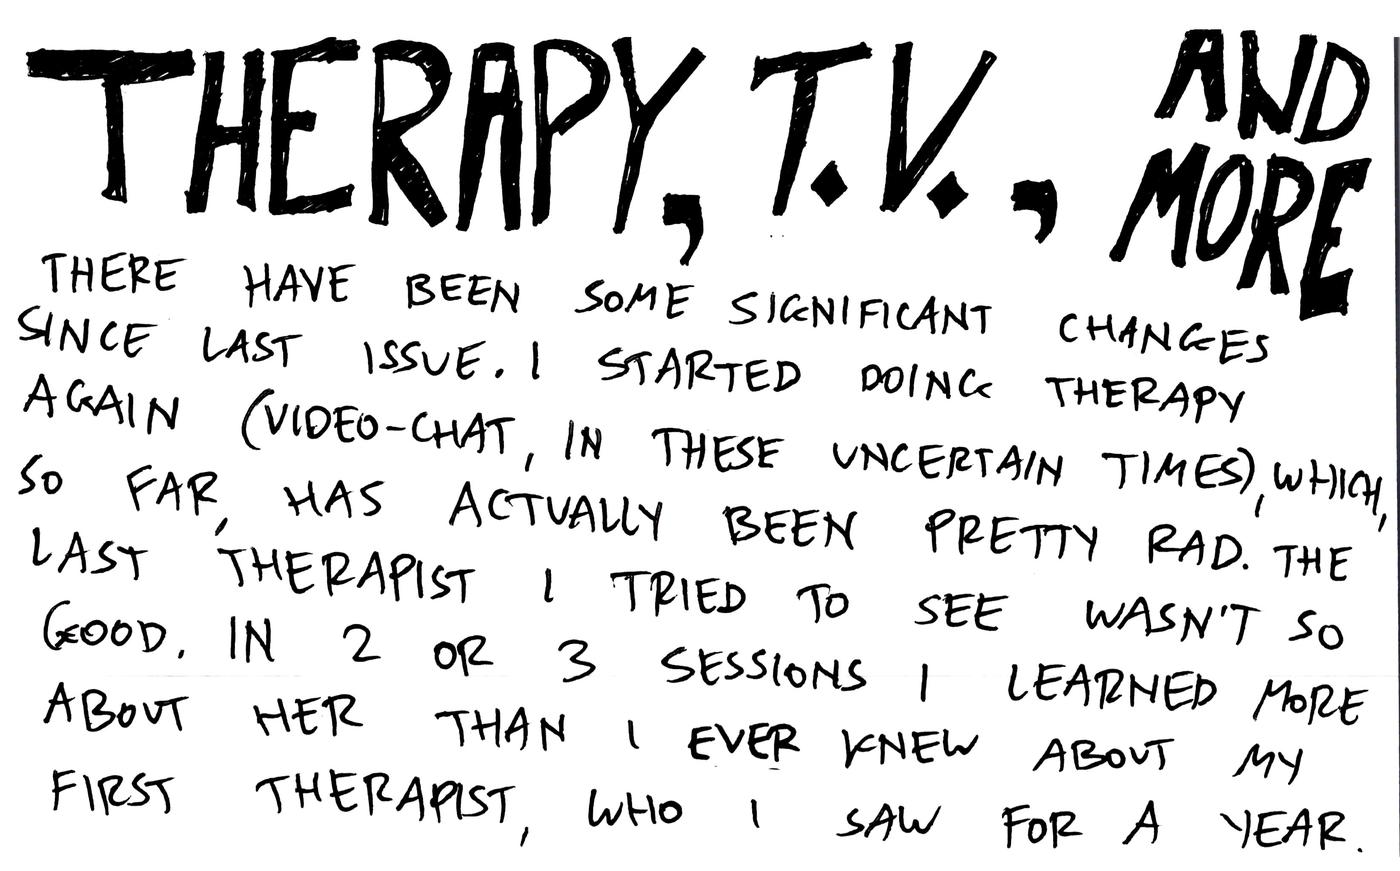 THERAPY, T.V., AND MORE
THERE HAVE BEEN SOME SIGNIFICANT CHANGES
SINCE LAST ISSUE. I STARTED DOING THERAPY
AGAIN (VIDEO-CHAT, IN THESE UNCERTAIN TIMES), WHICH,
SO FAR, HAS ACTUALLY BEEN PRETTY RAD. THE
LAST THERAPIST I TRIED TO SEE WASN'T SO
GOOD. IN 2 OR 3 SESSIONS I LEARNED MORE
ABOUT HER THAN I EVER KNEW ABOUT MY
FIRST THERAPIST, WHO I SAW FOR A YEAR.